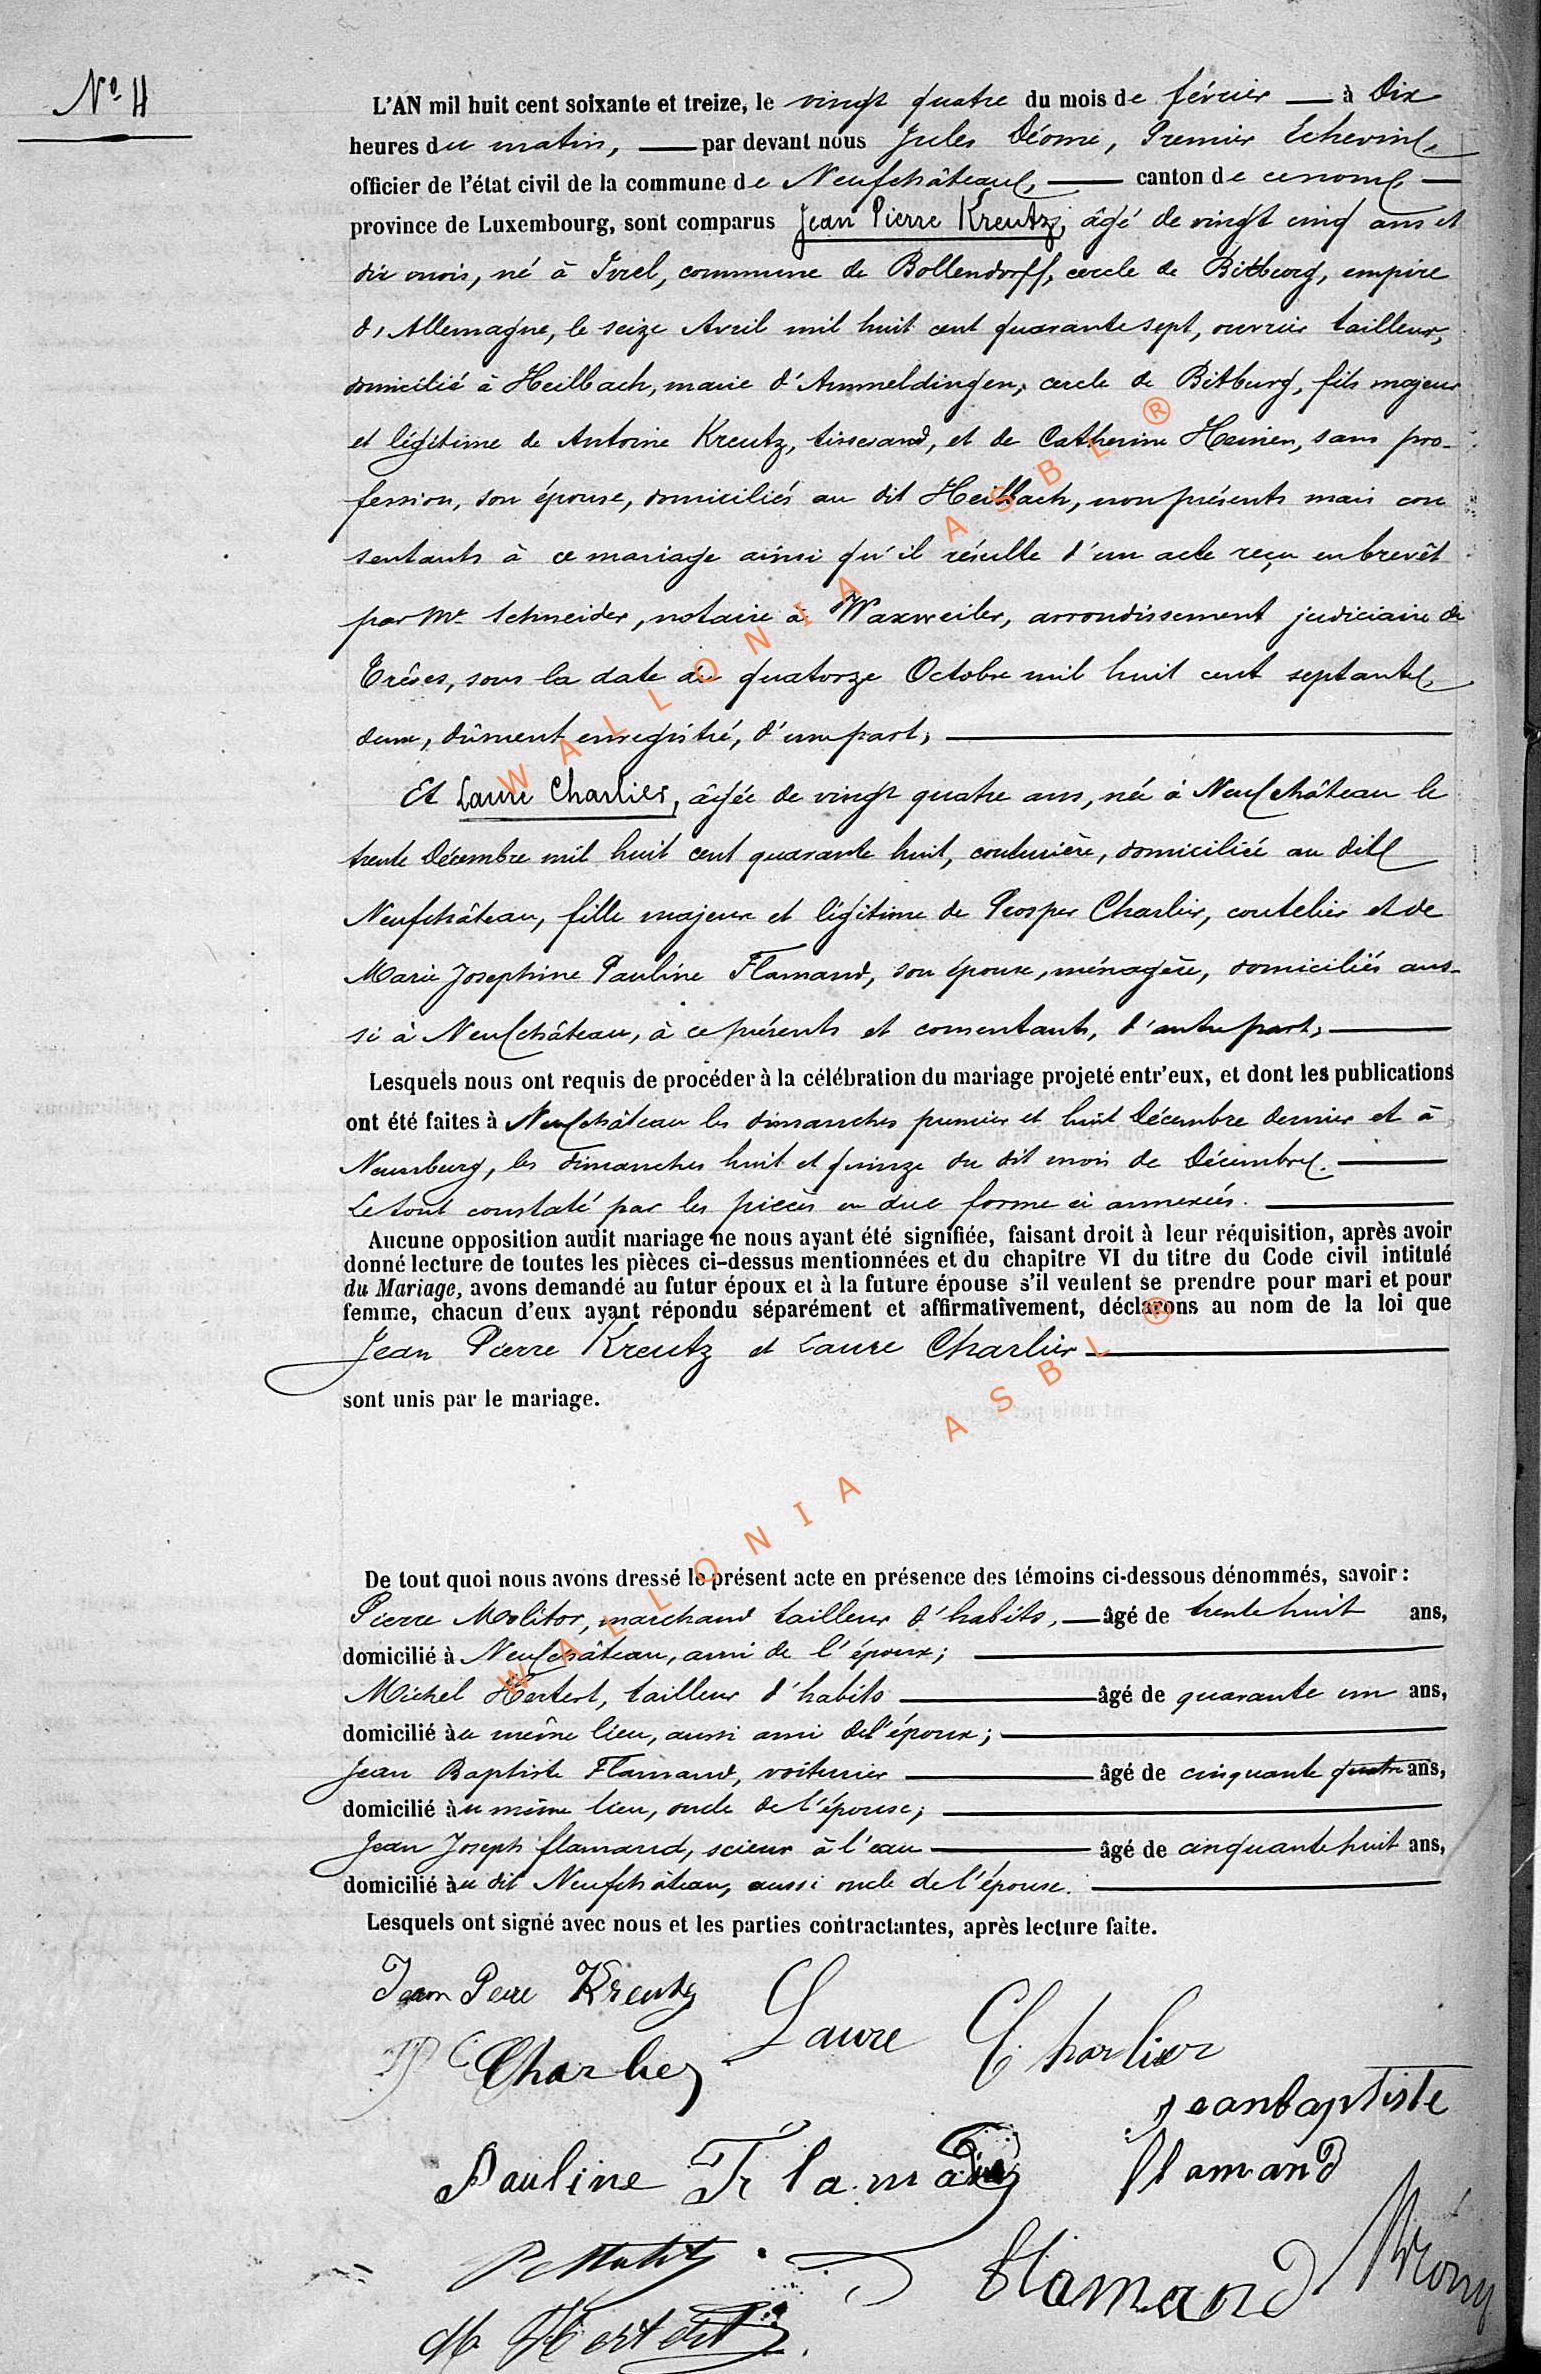 N° 4
L'AN mil huit cent soixante et treize, le vingt quatre du mois de février — à Dix
heures du matin, — par devant nous Jules Déome, Premier Echevin,
officier de l'état civil de la commune de Neufchâteau, — canton de ce nom, —
province de Luxembourg, sont comparus Jean Pierre Kreutz, âgé de vingt cinq ans et
dix mois, né à Irrel, commune de Bollendorff, cercle de Bitburg, empire
d'Allemagne, le seize Avril mil huit cent quarante sept, ouvrier tailleur,
domicilié à Heilbach, mairie d'Ammeldingen, cercle de Bitburg, fils majeur
et légitime de Antoine Kreutz, tisserand, et de Catherine Heinen, sans pro-
fession, son épouse, domiciliés au dit Heilbach, non présents mais con
sentants à ce mariage ainsi qu'il résulte d'un acte reçu en brevêt
par Me Schneider, notaire à Waxweiler, arrondissement judiciaire de
Trêves, sous la date du quatorze Octobre mil huit cent septante
deux, dûment enregistré, d'une part,
Et Laure Charlier, âgée de vingt quatre ans, née à Neufchâteau le
trente Décembre mil huit cent quarante huit, couturière, domiciliée au dit
Neufchâteau, fille majeure et légitime de Prosper Charlier, coutelier et de
Marie Josephine Pauline Flamand, son épouse, ménagère, domiciliés aus-
si à Neufchâteau, à ce présents et consentants, d'autre part,
Lesquels nous ont requis de procéder à la célébration du mariage projeté entr'eux, et dont les publications
ont été faites à Neufchâteau les dimanches premier et huit Décembre dernier et à
Neuerburg, les dimanches huit et quinze du dit mois de Décembre.
Le tout constaté par les pièces en due forme ci annexées.
Aucune opposition audit mariage ne nous ayant été signifiée, faisant droit à leur réquisition, après avoir
donné lecture de toutes les pièces ci-dessus mentionnées et du chapitre VI du titre du Code civil intitulé
du Mariage, avons demandé au futur époux et à la future épouse s'il veulent se prendre pour mari et pour
femme, chacun d'eux ayant répondu séparément et affirmativement, déclarons au nom de la loi que
Jean Pierre Kreutz et Laure Charlier
sont unis par le mariage.
De tout quoi nous avons dressé le présent acte en présence des témoins ci-dessous dénommés, savoir :
Pierre Molitor, marchand tailleur d'habits, — âgé de trente huit ans,
domicilié à Neufchâteau, ami de l'époux;
Michel Hertert, tailleur d'habits — âgé de quarante un ans,
domicilié au même lieu, aussi ami de l'époux;
Jean Baptiste Flamand, voiturier — âgé de cinquante quatre ans,
domicilié au même lieu, oncle de l'épouse;
Jean Joseph flamand, scieur à l'eau — âgé de cinquante huit ans,
domicilié au dit Neufchâteau, aussi oncle de l'épouse.
Lesquels ont signé avec nous et les parties contractantes, après lecture faite.
Jean Peire Kreutz Laure Charlier
Charlier
jeanbaptiste
Pauline Flamand flamand
P Molitor
flamand
M Hertert
WALLONIA ASBL ®
WALLONIA ASBL ®